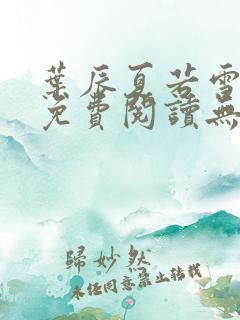 葉辰夏若雪
免費閱讀無
歸妙然
未經同意禁止轉載